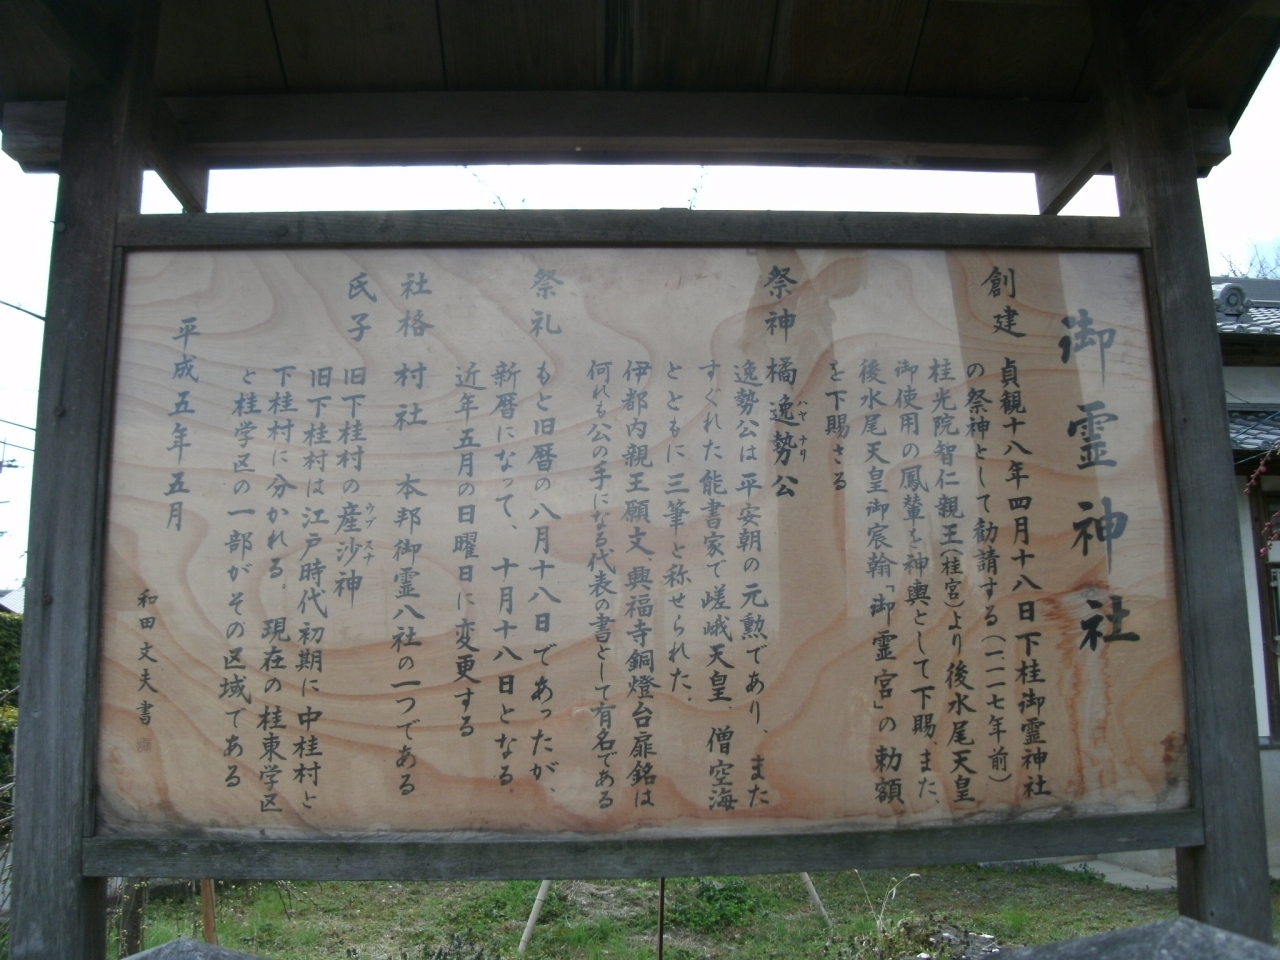 御霊神社
創建 貞観十八年四月十八日下桂御霊神社
の祭神として勧請する(一一一七年前)
桂光院智仁親王(桂宮)より後水尾天皇
御使用の鳳輦を神輿として下賜、また、
後水尾天皇御宸翰「御霊宮」の勅額
を下賜さる
祭神 橘逸勢公
ハヤナリ
逸勢公は平安朝の元勲であり、また
すぐれた能書家で嵯峨天皇、僧空海
とともに三筆と称せられた。
伊都内親王願文、興福寺銅燈台扉銘は
何れも公の手になる代表の書として有名である
祭礼 もと旧暦の八月十八日であったが、
新暦になって、十月十八日となる。
近年五月の日曜日に変更する
社格 村社 本邦御霊八社の一つである
氏子 旧下桂村の産沙神
ウブスナ
旧下桂村は江戸時代初期に中桂村と
下桂村に分かれる。現在の桂東学区
と桂学区の一部がその区域である
平成五年五月
和田文夫書